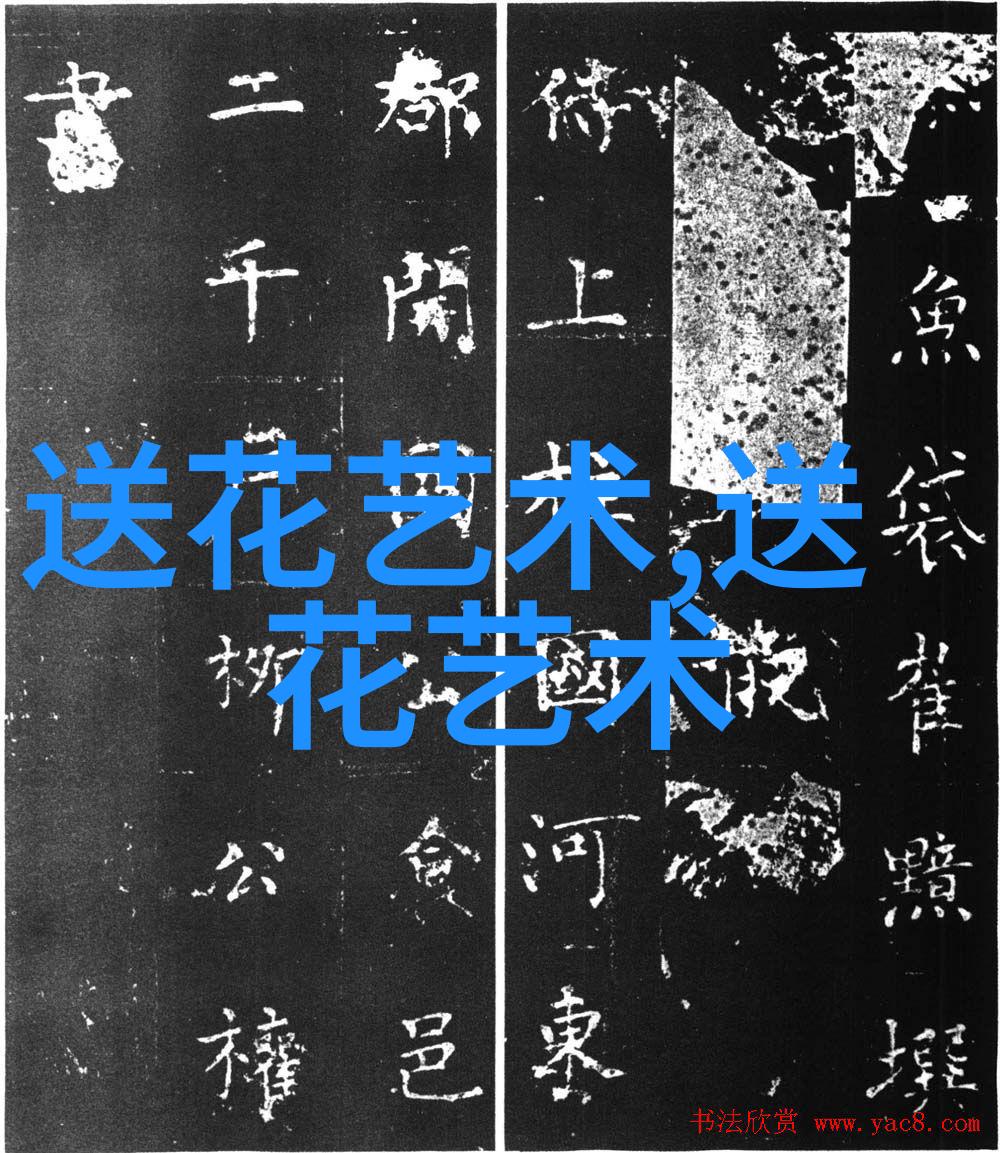 魚袋崔黯撰
侍上柱國河東
都開國公食邑
二千戶柳公權
書
送花艺术,送
花艺术
书法欣赏 www.yac8.com